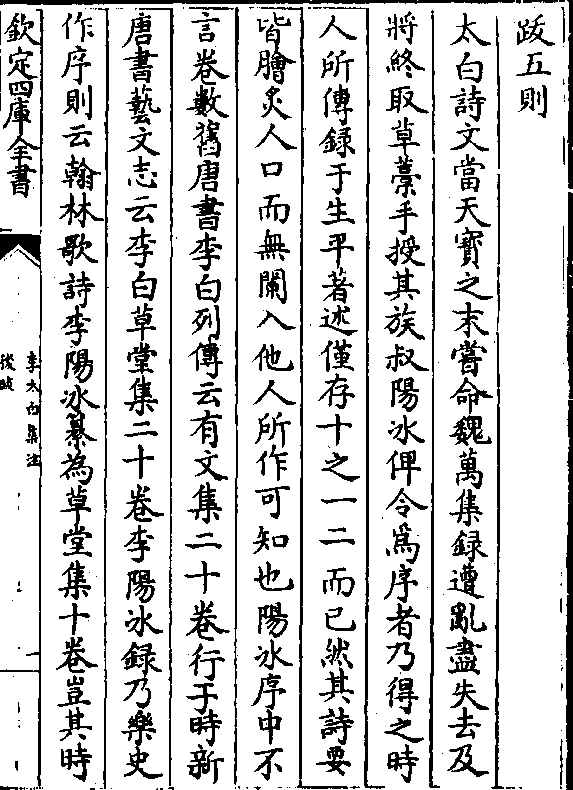 跋五則
太白詩文當天寶之末嘗命魏萬集録遭亂盡失去及
將終取草藁手授其族叔陽冰俾令為序者乃得之時
人所傳録于生平著述僅存十之一二而已然其詩要
皆膾炙人口而無闌入他人所作可知也陽冰序中不
言卷數舊唐書李白列傳云有文集二十卷行于時新
唐書藝文志云李白草堂集二十卷李陽冰録乃樂史
作序則云翰林歌詩李陽冰纂為草堂集十卷豈其時
欽定四庫全書
李太白集注
後跋
一